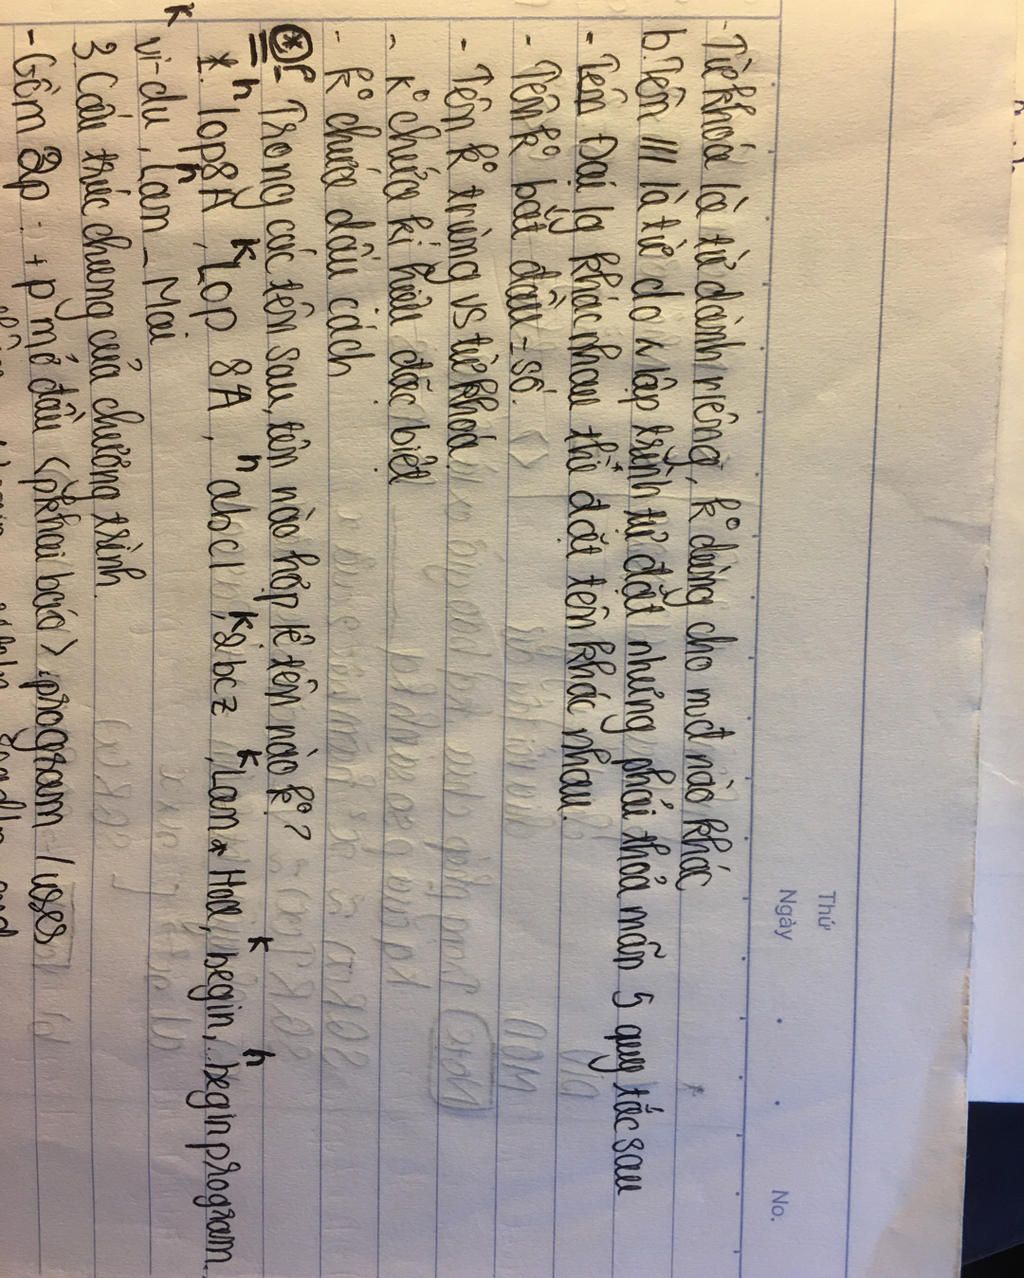 Thứ
Ngày
No.
- Từ khoá là từ dành riêng, k° dùng cho mđ nào khác
b. Tên /// là từ do n lập trình tự đặt nhưng phải thoả mãn 5 quy tắc sau
- Tên Đại lg khác nhau thì đặt tên khác nhau.
- Tên k° bắt đầu = số.
- Tên k° trùng vs từ khoá
- k° chứa kí hiệu đặc biệt
- k° chứa dấu cách
* Trong các tên sau, tên nào hợp lệ tên nào k°?
h k h k k k h
* lop8A, Lop 8A, abc1, 2bcz, Lan * Hoa, begin, beginprogram
k h
vi-du, Lan_Mai
3. Cấu trúc chung của chương trình
- Gồm 2p: + p mở đầu <pkhai báo> :program / uses